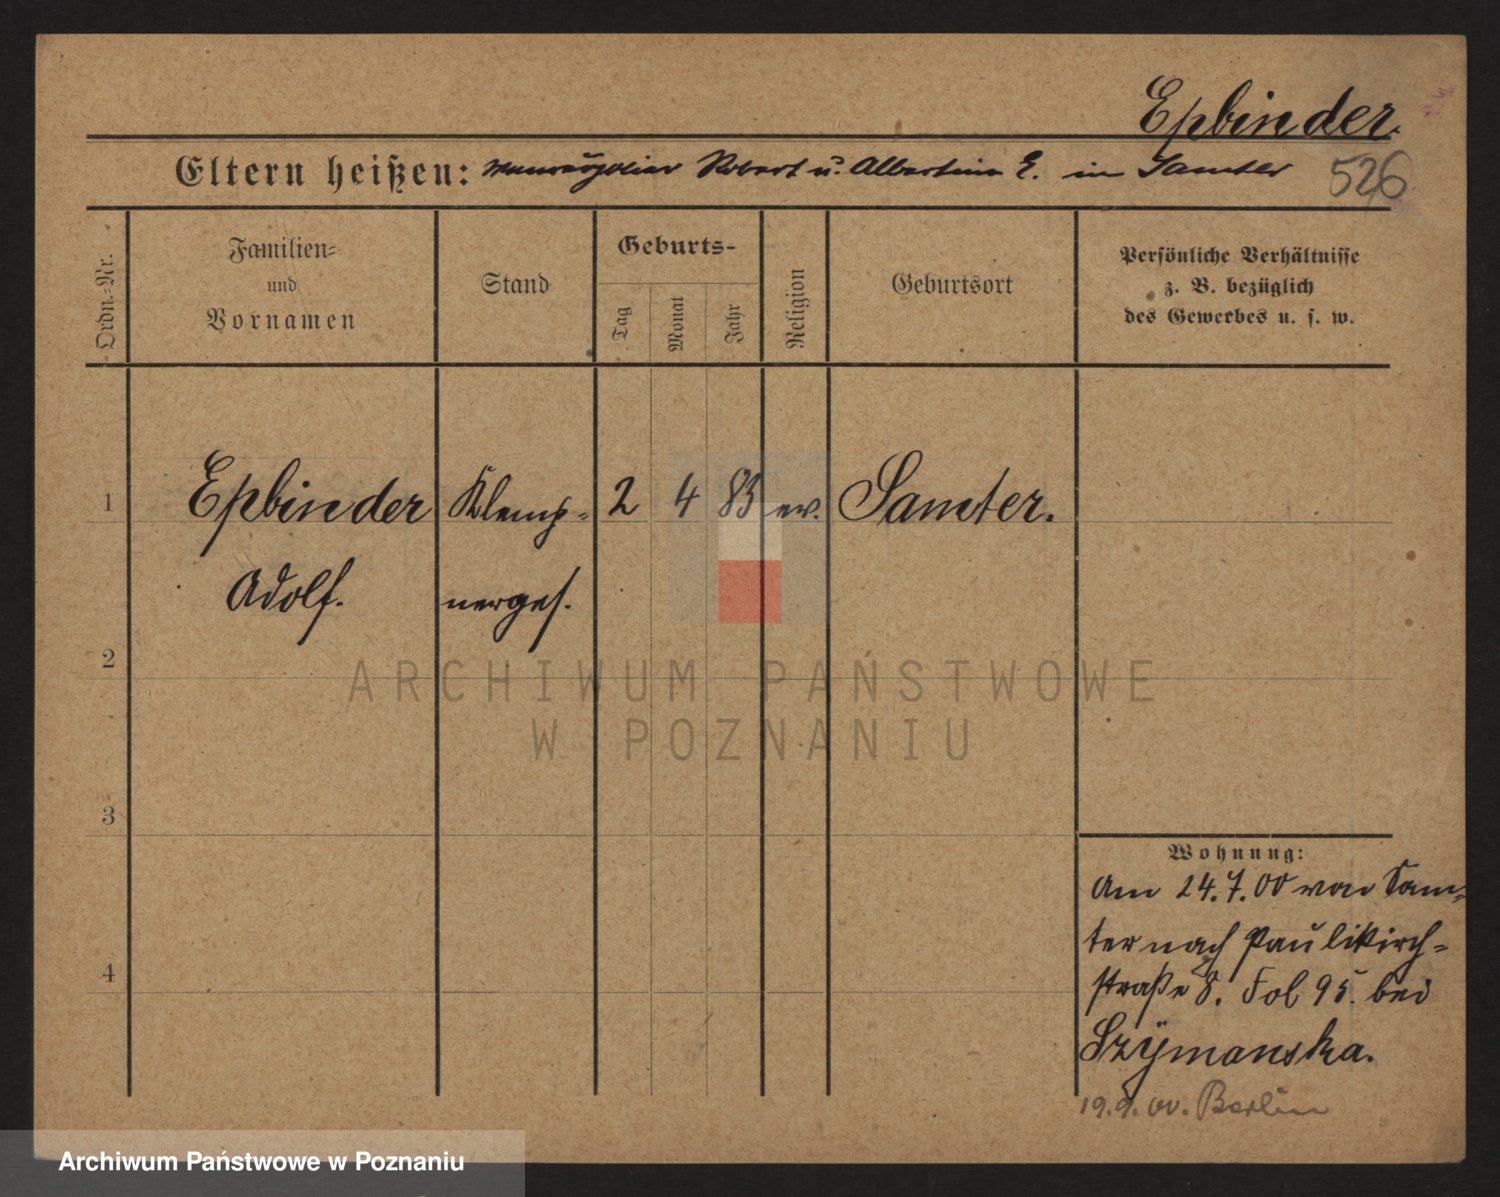 Epbinder.
Eltern heißen: Robert u. Albertine E. in Samter
526
Ordn.-Nr.
Familien-
und
Vornamen
Stand
Geburts-
Tag
Monat
Jahr
Religion
Geburtsort
Persönliche Verhältnisse
z. B. bezüglich
des Gewerbes u. s. w.
1 Epbinder Klemp- 2 4 83 ev. Samter.
Adolf. nerges.
2
3
4
Wohnung:
Am 24.7.00 von Sam-
ter nach Paulikirch-
straße 8. Fol 95. bei
Szÿmanska.
19.9.00. Berlin
ARCHIWUM PAŃSTWOWE
W POZNANIU
Archiwum Państwowe w Poznaniu